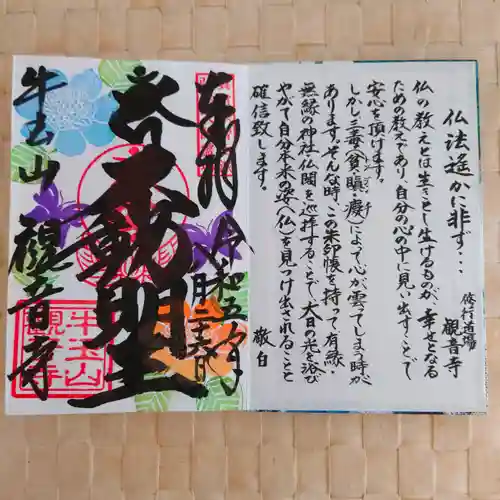 仏法遙かに非ず・・
修行道場
観音寺
仏の教えとは生きとし生けるものが、幸せとなる
ための教えであり、自分の心の中に見い出すことで
安心を頂けます。
しかし三毒(貪・瞋・癡)によって心が雲ってしまう時が
あります。そんな時、この朱印帳を持って有縁・
無縁の神社仏閣を巡拝することで、大日の光を浴び
やがて自分本来の姿(仏)を見つけ出されることと
確信致します。
敬白
奉拝
令和五年
月二十六日
不動明王
牛玉山
観音寺
牛玉山
観音寺